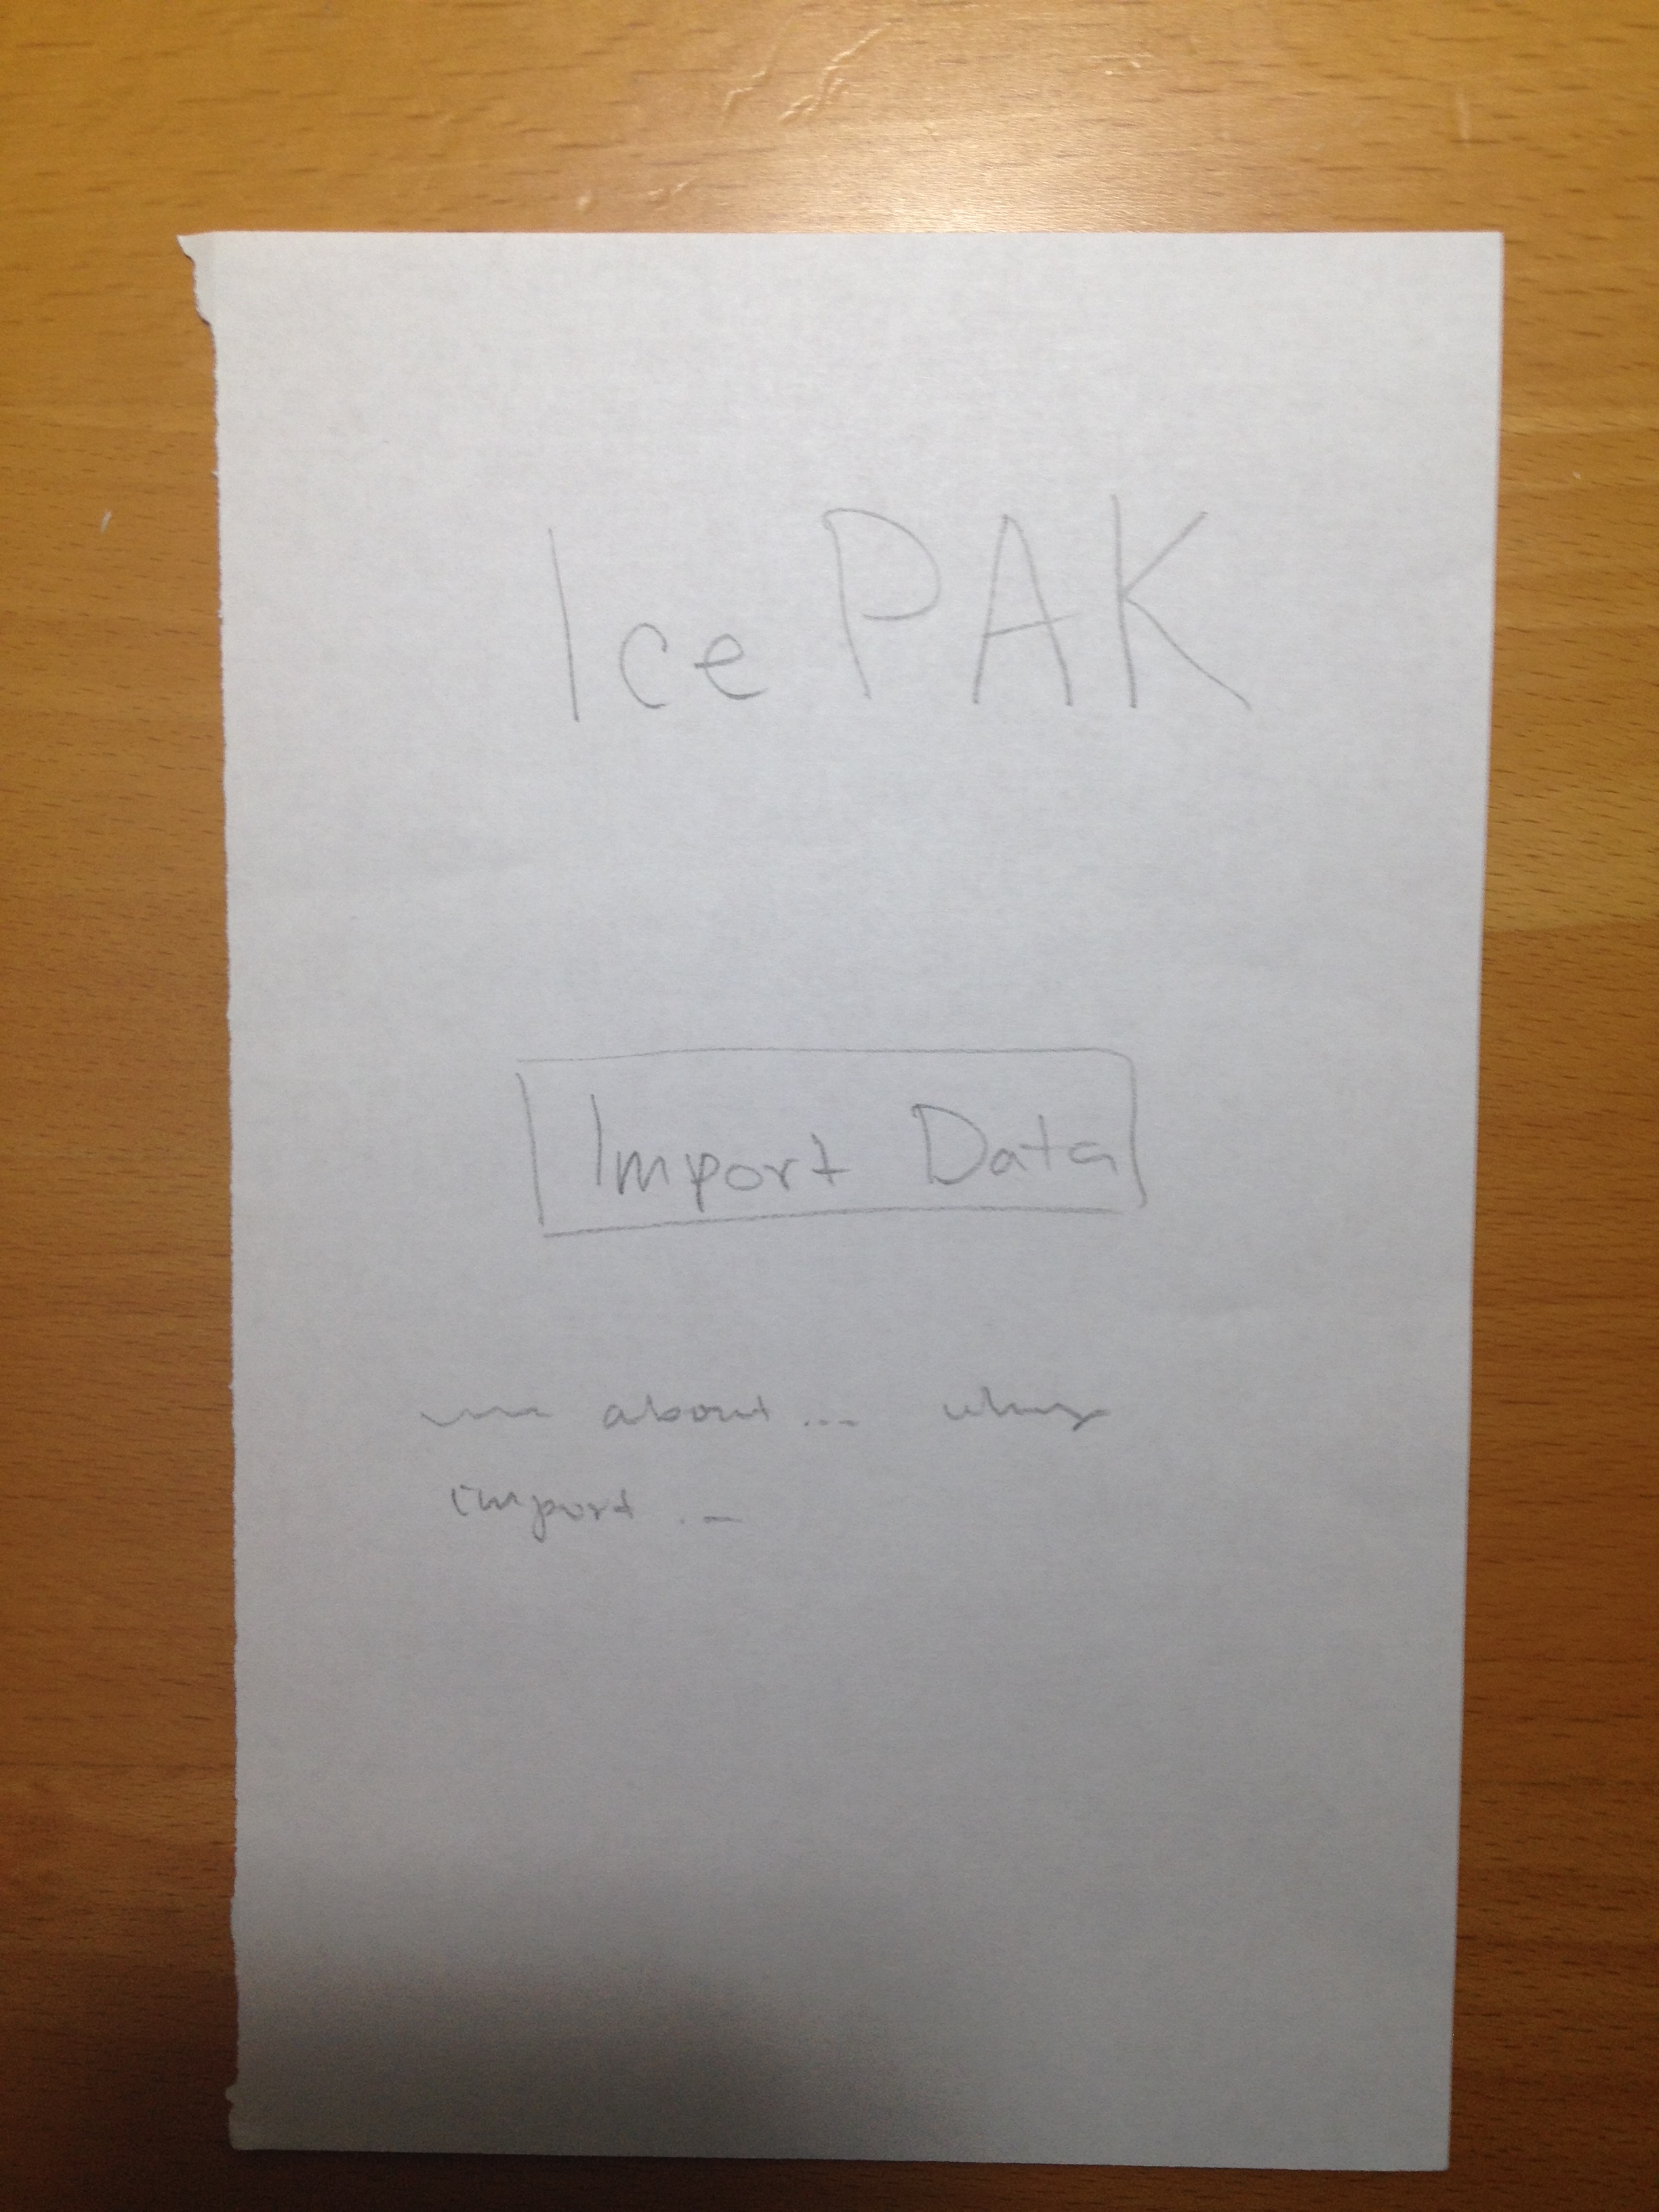 Ice PAK
Import Data
about ... why
import ...